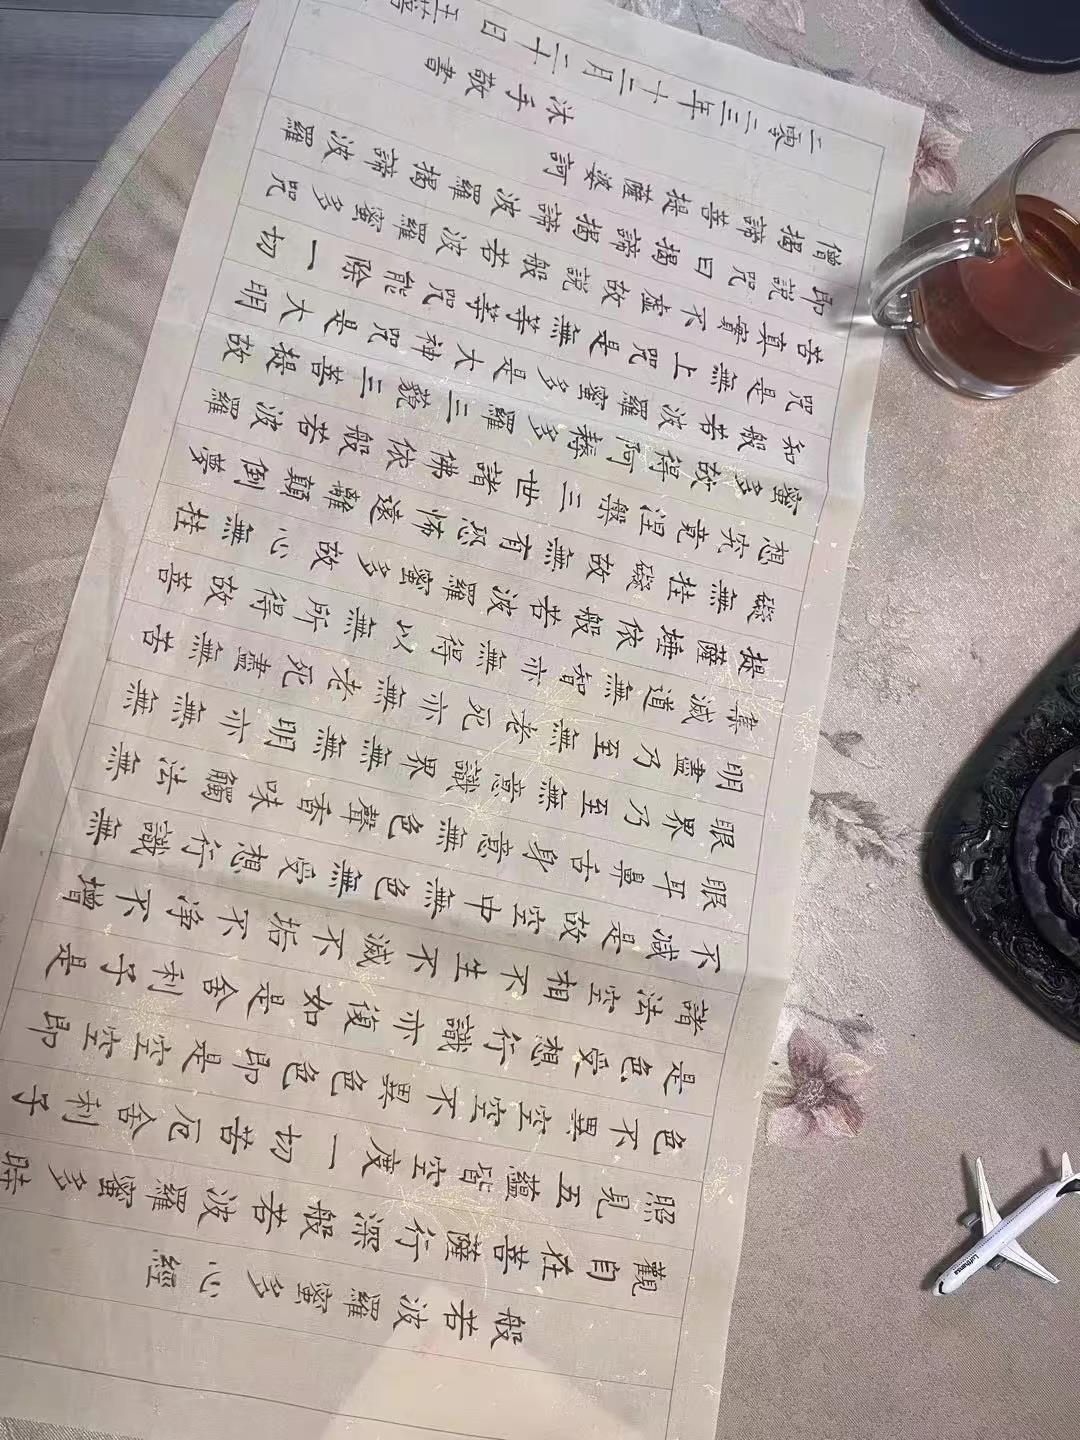 般若波羅蜜多心經
觀自在菩薩行深般若波羅蜜多時
照見五蘊皆空度一切苦厄舍利子
色不異空空不異色色即是空空即
是色受想行識亦復如是舍利子是
諸法空相不生不滅不垢不淨不增
不減是故空中無色無受想行識無
眼耳鼻舌身意無色聲香味觸法無
眼界乃至無意識界無無明亦無無
明盡乃至無老死亦無老死盡無苦
集滅道無智亦無得以無所得故菩
提薩埵依般若波羅蜜多故心無挂
礙無挂礙故無有恐怖遠離顛倒夢
想究竟涅槃三世諸佛依般若波羅
蜜多故得阿耨多羅三藐三菩提故
知般若波羅蜜多是大神咒是大明
咒是無上咒是無等等咒能除一切
苦真實不虛故說般若波羅蜜多咒
即說咒曰揭諦揭諦波羅揭諦波羅
僧揭諦菩提薩婆訶
沐手敬書
二零二三年十二月二十日
Lufthansa